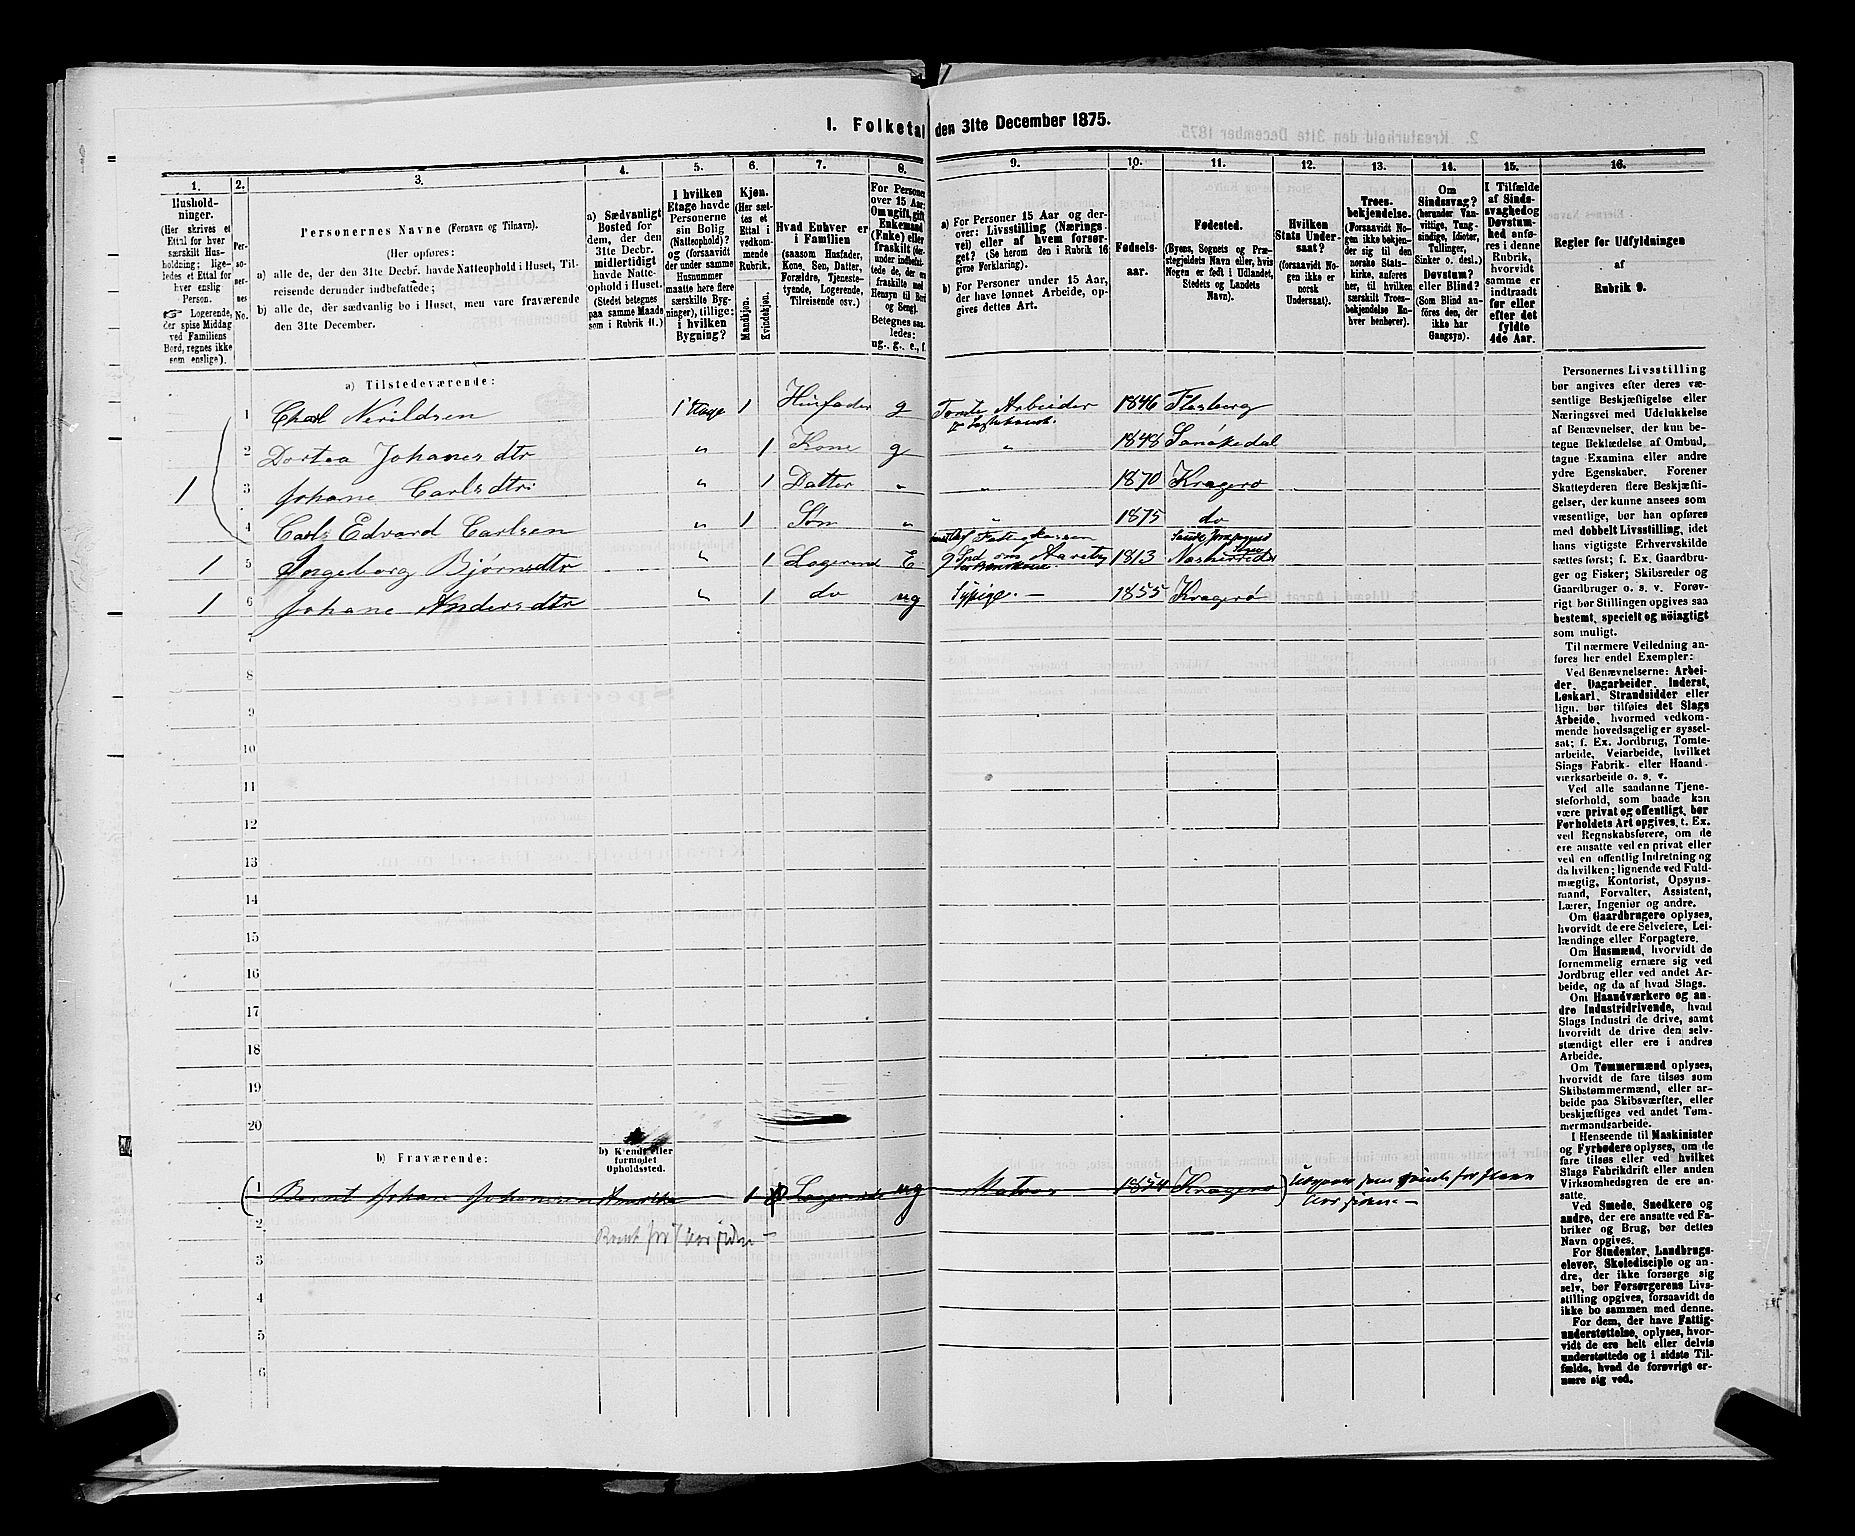 I. Folketal den 31te December 1875.
1. 2. 3. 4. 5. 6. 7. 8. 9. 10. 11. 12. 13. 14. 15. 16.
Hushold-
ninger.
(Her skrives et
Ettal for hver
særskilt Hus-
holdning; lige-
ledes et Ettal for
hver enslig
Person.
☞ Logerende,
der spise Middag
ved Familiens
Bord, regnes ikke
som enslige).
Per-
so-
ner-
nes
No.
Personernes Navne (Fornavn og Tilnavn).
(Her opføres:
a) alle de, der den 31te Decbr. havde Natteophold i Huset, Til-
reisende derunder indbefattede;
b) alle de, der sædvanlig bo i Huset, men vare fraværende
den 31te December.
a) Sædvanligt
Bosted for
dem, der den
31te Decbr.
midlertidigt
havde Natte-
ophold i Huset.
(Stedet betegnes
paa samme Maade
som i Rubrik 11.)
I hvilken
Etage havde
Personerne
sin Bolig
(Natteophold)?
og (forsaavidt
der under samme
Husnummer
maatte høre flere
særskilte Byg-
ninger), tillige:
i hvilken
Bygning?
Kjøn.
(Her sæt-
tes et
Ettal i
vedkom-
mende
Rubrik.
Mandkjøn.
Kvindekjøn.
Hvad Enhver er
i Familien
(saasom Husfader,
Kone, Søn, Datter,
Forældre, Tjeneste-
tyende, Logerende,
Tilreisende osv.)
For Personer
over 15 Aar:
Om ugift, gift,
Enkemand
(Enke) eller
fraskilt
Betegnes saa-
ledes:
ug., g., e., f.
a) For Personer 15 Aar og der-
over: Livsstilling (Nærings-
vei) eller af hvem forsør-
get? (Se herom den i Rubrik 16
givne Forklaring).
b) For Personer under 15 Aar,
der have lønnet Arbeide, op-
gives dettes Art.
Fødsels-
aar.
Fødested.
(Byens, Sognets og Præ-
stegjeldets Navn eller, hvis
Nogen er født i Udlandet,
Stedets og Landets
Navn).
Hvilken
Stats Under-
saat?
(forsaavidt No-
gen ikke er
norsk
Undersaat).
Troes-
bekjendelse.
(Forsaavidt No-
gen ikke bekjen-
der sig til den
norske Stats-
kirke, anføres
her, til hvilken
særskilt Troes-
bekjendelse En-
hver henhører).
Om
Sindssvag?
(herunder Van-
vittige, Tung-
sindige, Idioter,
Tullinger,
Sinker o. desl.)
Døvstum?
eller Blind?
(Som Blind an-
føres den, der
ikke har
Gangsyn).
I Tilfælde
af Sinds-
svaghed og
Døvstum-
hed anfø-
res i denne
Rubrik,
hvorvidt
samme er
indtraadt
før eller
efter det
fyldte
4de Aar.
Regler for Udfyldningen
af
Rubrik 9.
a) Tilstedeværende:
1 1 Nerildsen 1 Etage 1 Husfader g Tomte Arbeider 1846 Flesberg
2 Dortea Johanesdtr " 1 Kone g " 1848 Sanøkedal
3 Johane Carlsdtr " 1 Datter " " 1870 Kragerø
4 Carls Edvard Carlsen " 1 Søn " " 1875 do
1 5 Ingeborg Bjørnsdtr " 1 Logerend E 1813
1 6 Johane Andersdtr " 1 do ug Sypige. — 1855 Kragerø
7
8
9
10
11
12
13
14
15
16
17
18
19
20
b) Fraværende:
b) Kjendt eller
formodet
Opholdssted.
1 Bernt Johan Johansen Amerika 1 Logerende ug Matros 1854 Kragerø
2
3
4
5
6
Personernes Livsstilling
bør angives efter deres væ-
sentlige Beskjæftigelse eller
Næringsvei med Udelukkelse
af Benævnelser, der kun be-
tegne Beklædelse af Ombud,
tagne Examina eller andre
ydre Egenskaber. Forener
Skatteyderen flere Beskjæfti-
gelser, der kunne ansees som
væsentlige, bør han opføres
med dobbelt Livsstilling, idet
hans vigtigste Erhvervskilde
sættes først; f. Ex. Gaardbru-
ger og Fisker; Skibsreder og
Gaardbruger o. s. v. Forøv-
rigt bør Stillingen opgives saa
bestemt, specielt og nöiagtigt
som muligt.
Til nærmere Veiledning an-
føres her endel Exempler:
Ved Benævnelserne: Arbei-
der, Dagarbeider, Inderst,
Løskarl, Strandsidder eller
lign. bør tilføies det Slags
Arbeide, hvormed vedkom-
mende hovedsagelig er syssel-
sat; f. Ex. Jordbrug, Tomte-
arbeide, Veiarbeide, hvilket
Slags Fabrik- eller Haand-
værksarbeide o. s. v.
Ved alle saadanne Tjene-
steforhold, som baade kan
være privat og offentligt, bør
Forholdets Art opgives, t. Ex.
ved Regnskabsførere, om de
ere ansatte ved en privat eller
ved en offentlig Indretning og
da hvilken; lignende ved Fuld-
mægtig, Kontorist, Opsyns-
mand, Forvalter, Assistent,
Lærer, Ingeniør og andre.
Om Gaardbrugere oplyses,
hvorvidt de ere Selveiere, Lei-
lændinge eller Forpagtere.
Om Husmænd, hvorvidt de
fornemmelig ernære sig ved
Jordbrug eller ved andet Ar-
beide, og da af hvad Slags.
Om Haandværkere og an-
dre Industridrivende, hvad
Slags Industri de drive, samt
hvorvidt de drive den selv-
stændigt eller ere i andres
Arbeide.
Om Tømmermænd oplyses,
hvorvidt de fare tilsøs som
Skibstømmermænd, eller ar-
beide paa Skibsværfter, eller
beskjæftiges ved andet Tøm-
mermandsarbeide.
I Henseende til Maskinister
og Fyrbødere oplyses, om de
fare tilsøs eller ved hvilket
Slags Fabrikdrift eller anden
Virksomhedsgren de ere an-
satte.
Ved Smede, Snedkere og
andre, der ere ansatte ved Fa-
briker og Brug, bør dettes
Navn opgives.
For Studenter, Landbrugs-
elever, Skoledisciple og an-
dre, der ikke forsørge sig
selv, bør Forsørgerens Livs-
stilling opgives, forsaavidt de
ikke bo sammen med denne.
For dem, der have Fattig-
understøttelse, oplyses, hvor-
vidt de ere helt eller delvis
understøttede og i sidste Til-
fælde, hvad de forøvrigt er-
nære sig ved.